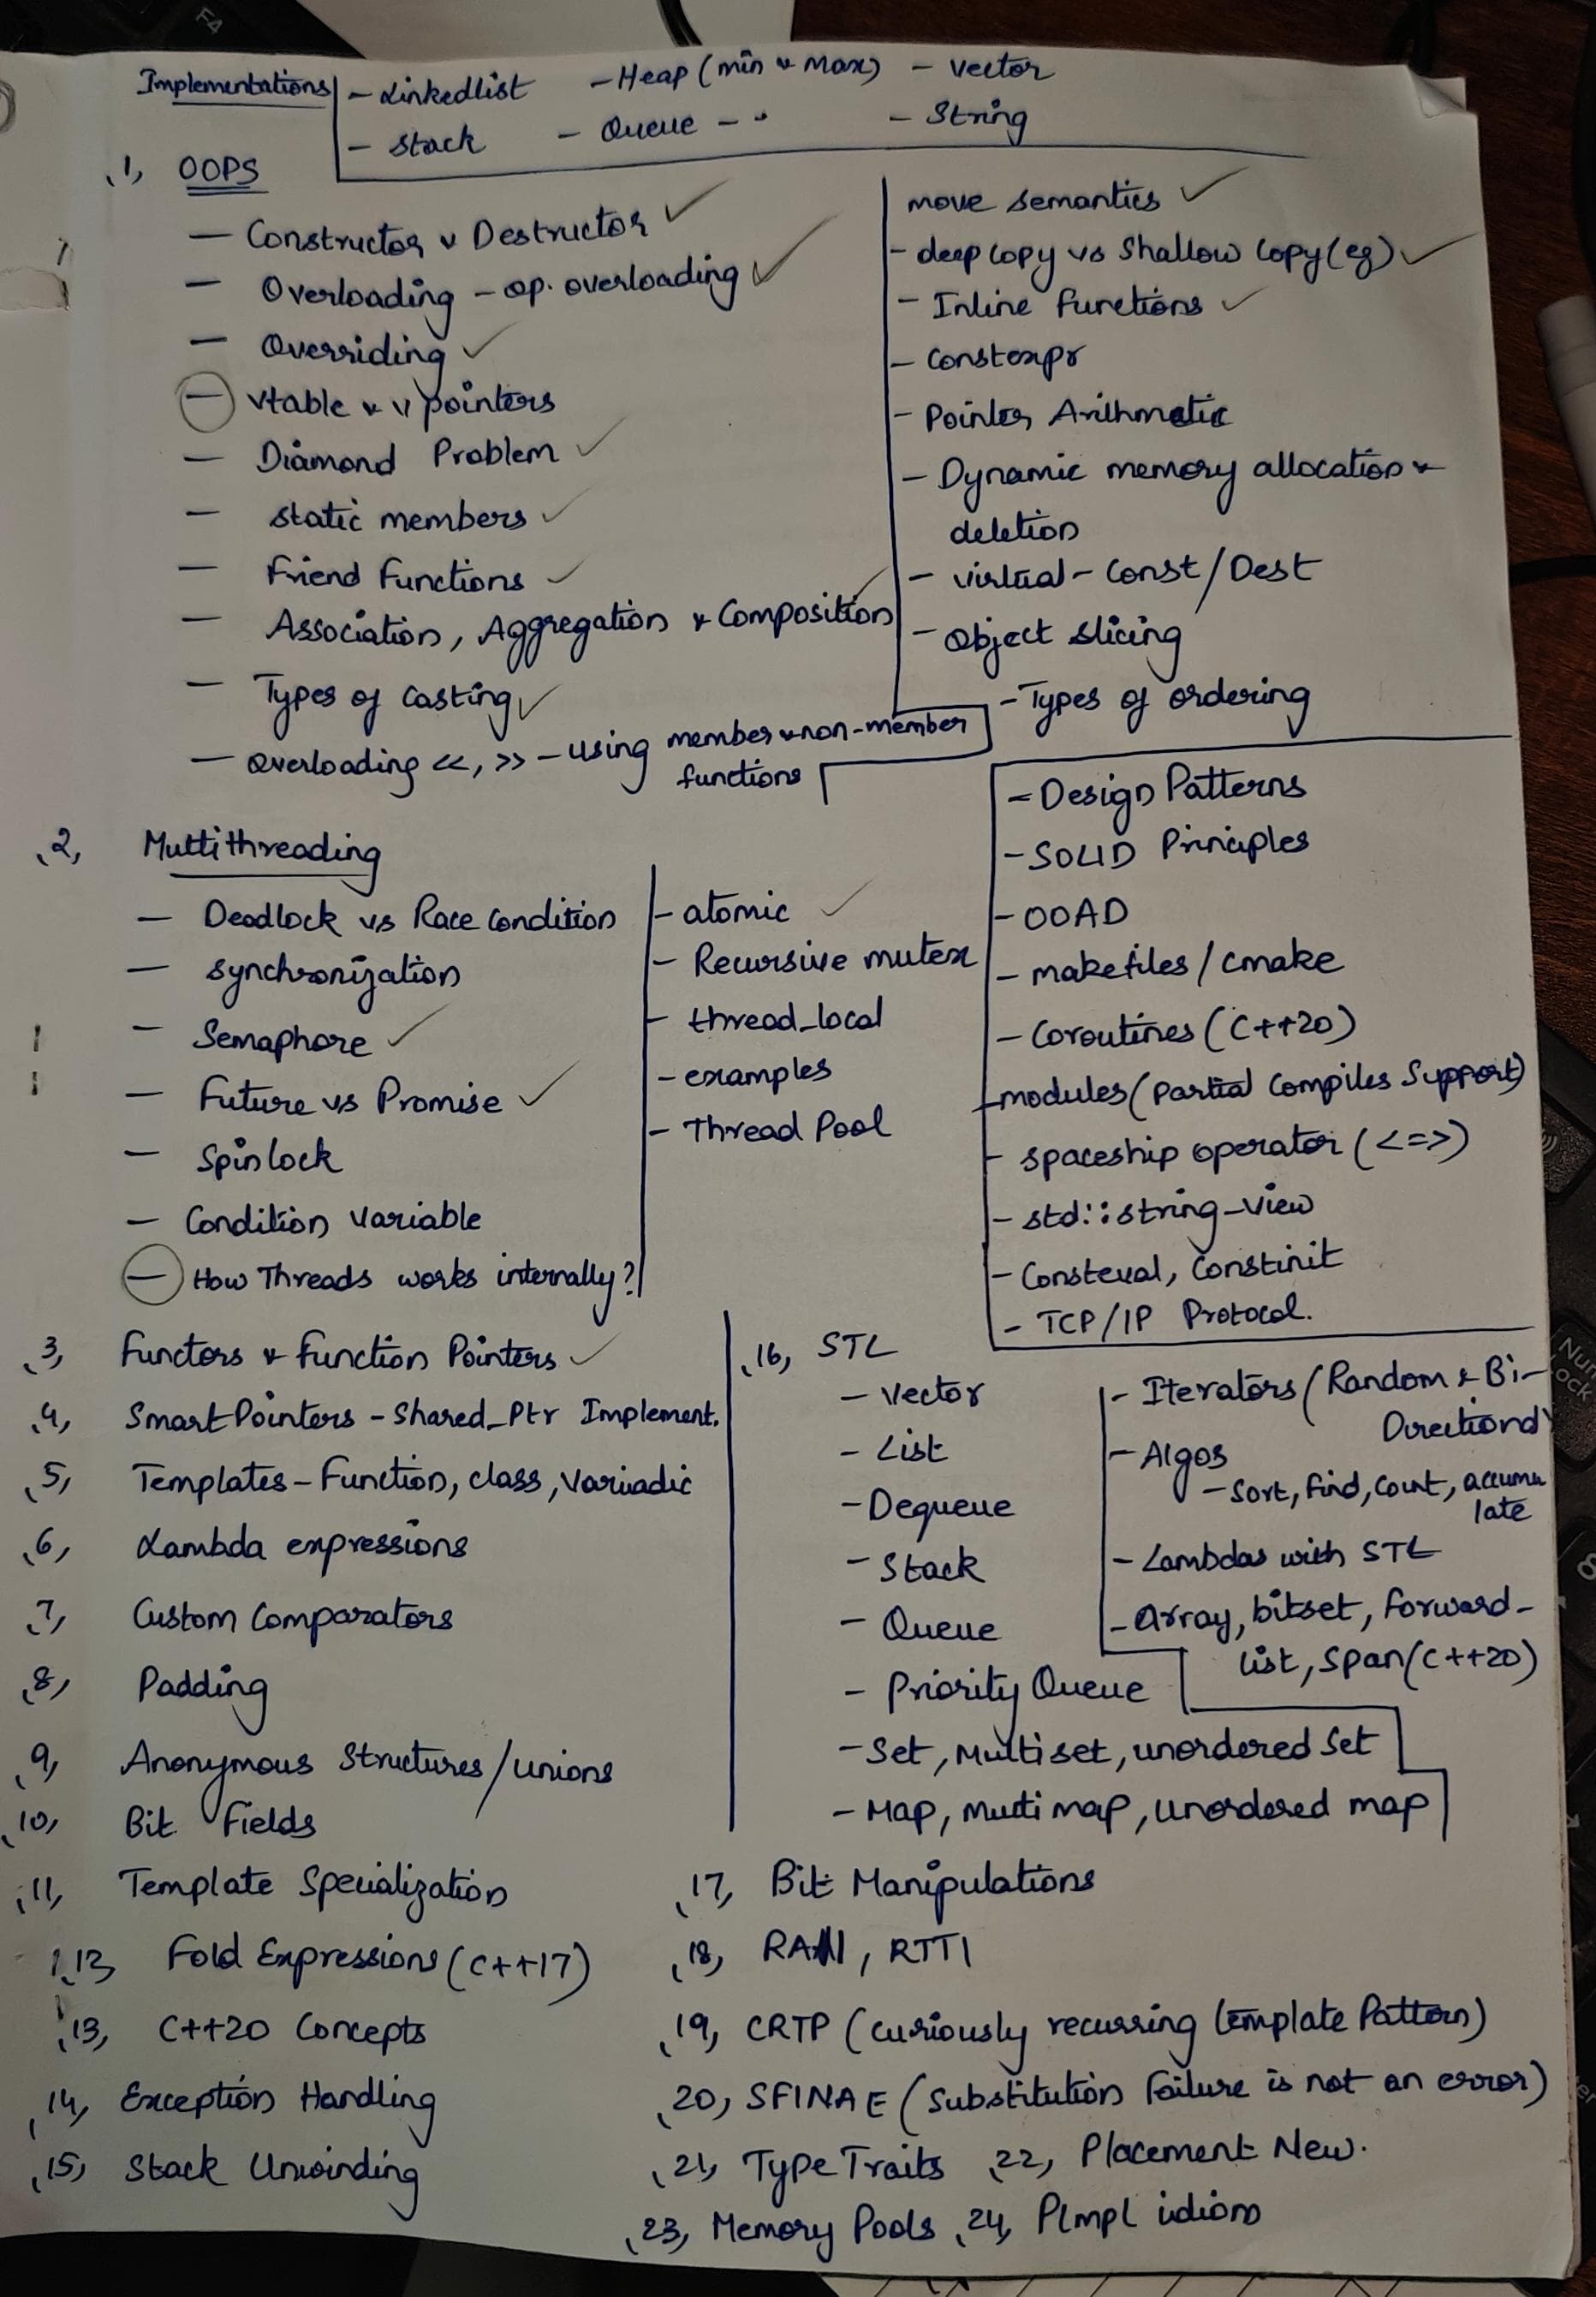 Implementations
- Linkedlist - Heap (min & Max) - vector
- Stack - Queue - " - String
1, OOPS
- Constructor & Destructor ✓
- Overloading - op. overloading ✓
- Overriding ✓
- vtable & v pointers
- Diamond Problem ✓
- static members ✓
- Friend Functions ✓
- Association, Aggregation & Composition ✓
- Types of Casting ✓
- overloading <<, >> - using member & non-member
functions
move semantics ✓
- deep copy vs Shallow Copy (eg) ✓
- Inline functions ✓
- Constexpr
- Pointer Arithmetic
- Dynamic memory allocation &
deletion
- virtual - Const/Dest
- Object slicing
- Types of ordering
2, Multithreading
- Deadlock vs Race Condition
- synchronization
- Semaphore ✓
- Future vs Promise ✓
- Spinlock
- Condition variable
- How Threads works internally?
- atomic ✓
- Recursive mutex
- thread_local
- examples
- Thread Pool
- Design Patterns
- SOLID Principles
- OOAD
- makefiles / cmake
- Coroutines (C++20)
- modules (Partial Compiler Support)
- spaceship operator (<=>)
- std::string_view
- Consteval, Constinit
- TCP/IP Protocol.
3, Functors & Function Pointers ✓
4, Smart Pointers - Shared_Ptr Implement.
5, Templates - Function, class, variadic
6, Lambda expressions
7, Custom Comparators
8, Padding
9, Anonymous Structures/unions
10, Bit Fields
11, Template Specialization
12, Fold Expressions (C++17)
13, C++20 Concepts
14, Exception Handling
15, Stack Unwinding
16, STL
- Vector
- List
- Dequeue
- Stack
- Queue
- Priority Queue
- Set, Multiset, unordered Set
- Map, multi map, unordered map
- Iterators (Random & Bi-
Directional)
- Algos
- Sort, find, Count, accumu
late
- Lambdas with STL
- Array, bitset, forward-
list, Span (C++20)
17, Bit Manipulations
18, RAII, RTTI
19, CRTP (curiously recurring template Pattern)
20, SFINAE (Substitution Failure is not an error)
21, Type Traits 22, Placement New.
23, Memory Pools 24, PImpl idiom